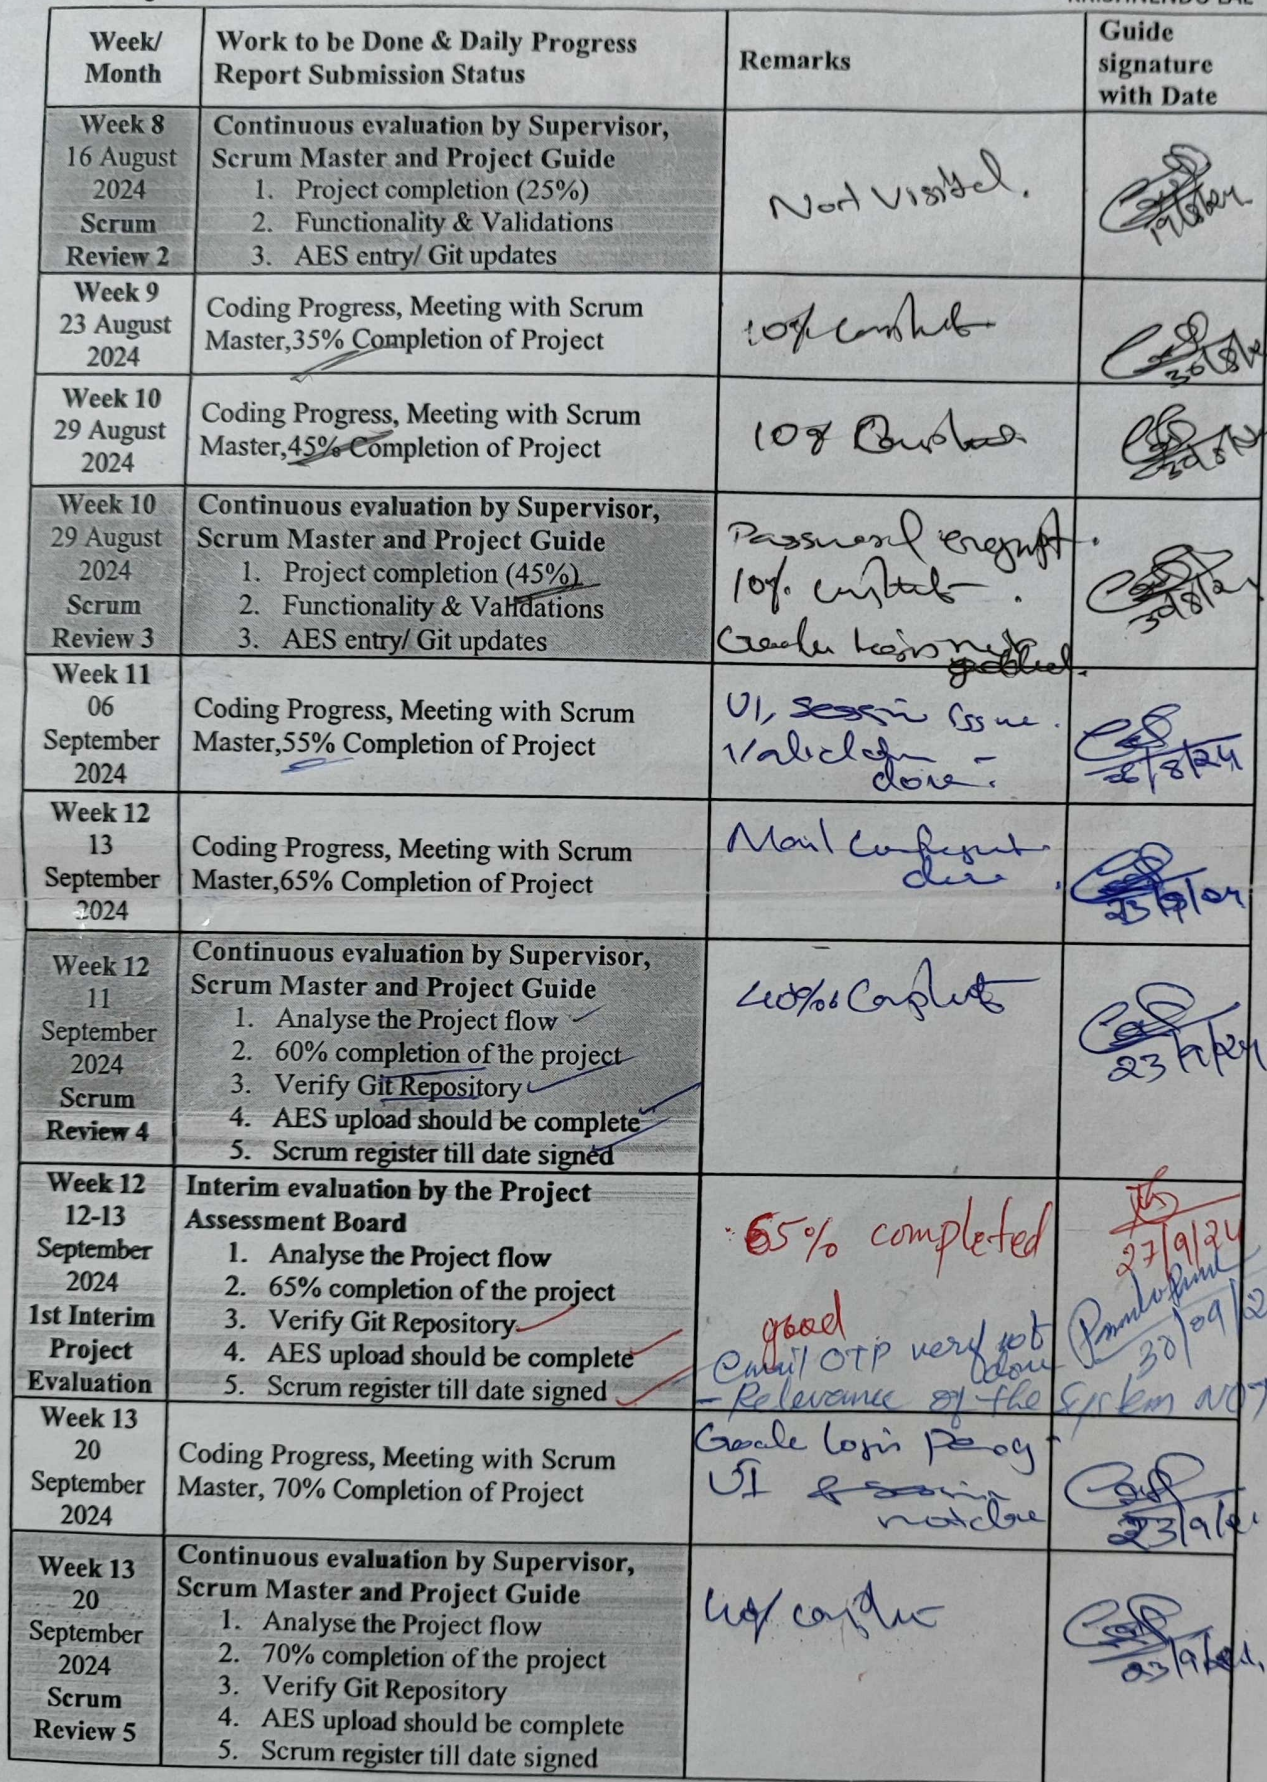 Week/
Month
Work to be Done & Daily Progress
Report Submission Status
Remarks
Guide
signature
with Date
Week 8
16 August
2024
Scrum
Review 2
Continuous evaluation by Supervisor,
Scrum Master and Project Guide
1. Project completion (25%)
2. Functionality & Validations
3. AES entry/ Git updates
19/8/24
Week 9
23 August
2024
Coding Progress, Meeting with Scrum
Master,35% Completion of Project
10%
30/8/
Week 10
29 August
2024
Coding Progress, Meeting with Scrum
Master,45% Completion of Project
30/8/
Week 10
29 August
2024
Scrum
Review 3
Continuous evaluation by Supervisor,
Scrum Master and Project Guide
1. Project completion (45%)
2. Functionality & Validations
3. AES entry/ Git updates
10%.
30/8/24
Week 11
06
September
2024
Coding Progress, Meeting with Scrum
Master,55% Completion of Project
UI, session issue.
done
/8/24
Week 12
13
September
2024
Coding Progress, Meeting with Scrum
Master,65% Completion of Project
Mail
23/9/24
Week 12
11
September
2024
Scrum
Review 4
Continuous evaluation by Supervisor,
Scrum Master and Project Guide
1. Analyse the Project flow
2. 60% completion of the project
3. Verify Git Repository
4. AES upload should be complete
5. Scrum register till date signed
40%
23/9/24
Week 12
12-13
September
2024
1st Interim
Project
Evaluation
Interim evaluation by the Project
Assessment Board
1. Analyse the Project flow
2. 65% completion of the project
3. Verify Git Repository
4. AES upload should be complete
5. Scrum register till date signed
65% completed
good
27/9/24
Email OTP very not
done
30/09/2
- Relevance of the System NOT
Week 13
20
September
2024
Coding Progress, Meeting with Scrum
Master, 70% Completion of Project
login
UI
23/9/
Week 13
20
September
2024
Scrum
Review 5
Continuous evaluation by Supervisor,
Scrum Master and Project Guide
1. Analyse the Project flow
2. 70% completion of the project
3. Verify Git Repository
4. AES upload should be complete
5. Scrum register till date signed